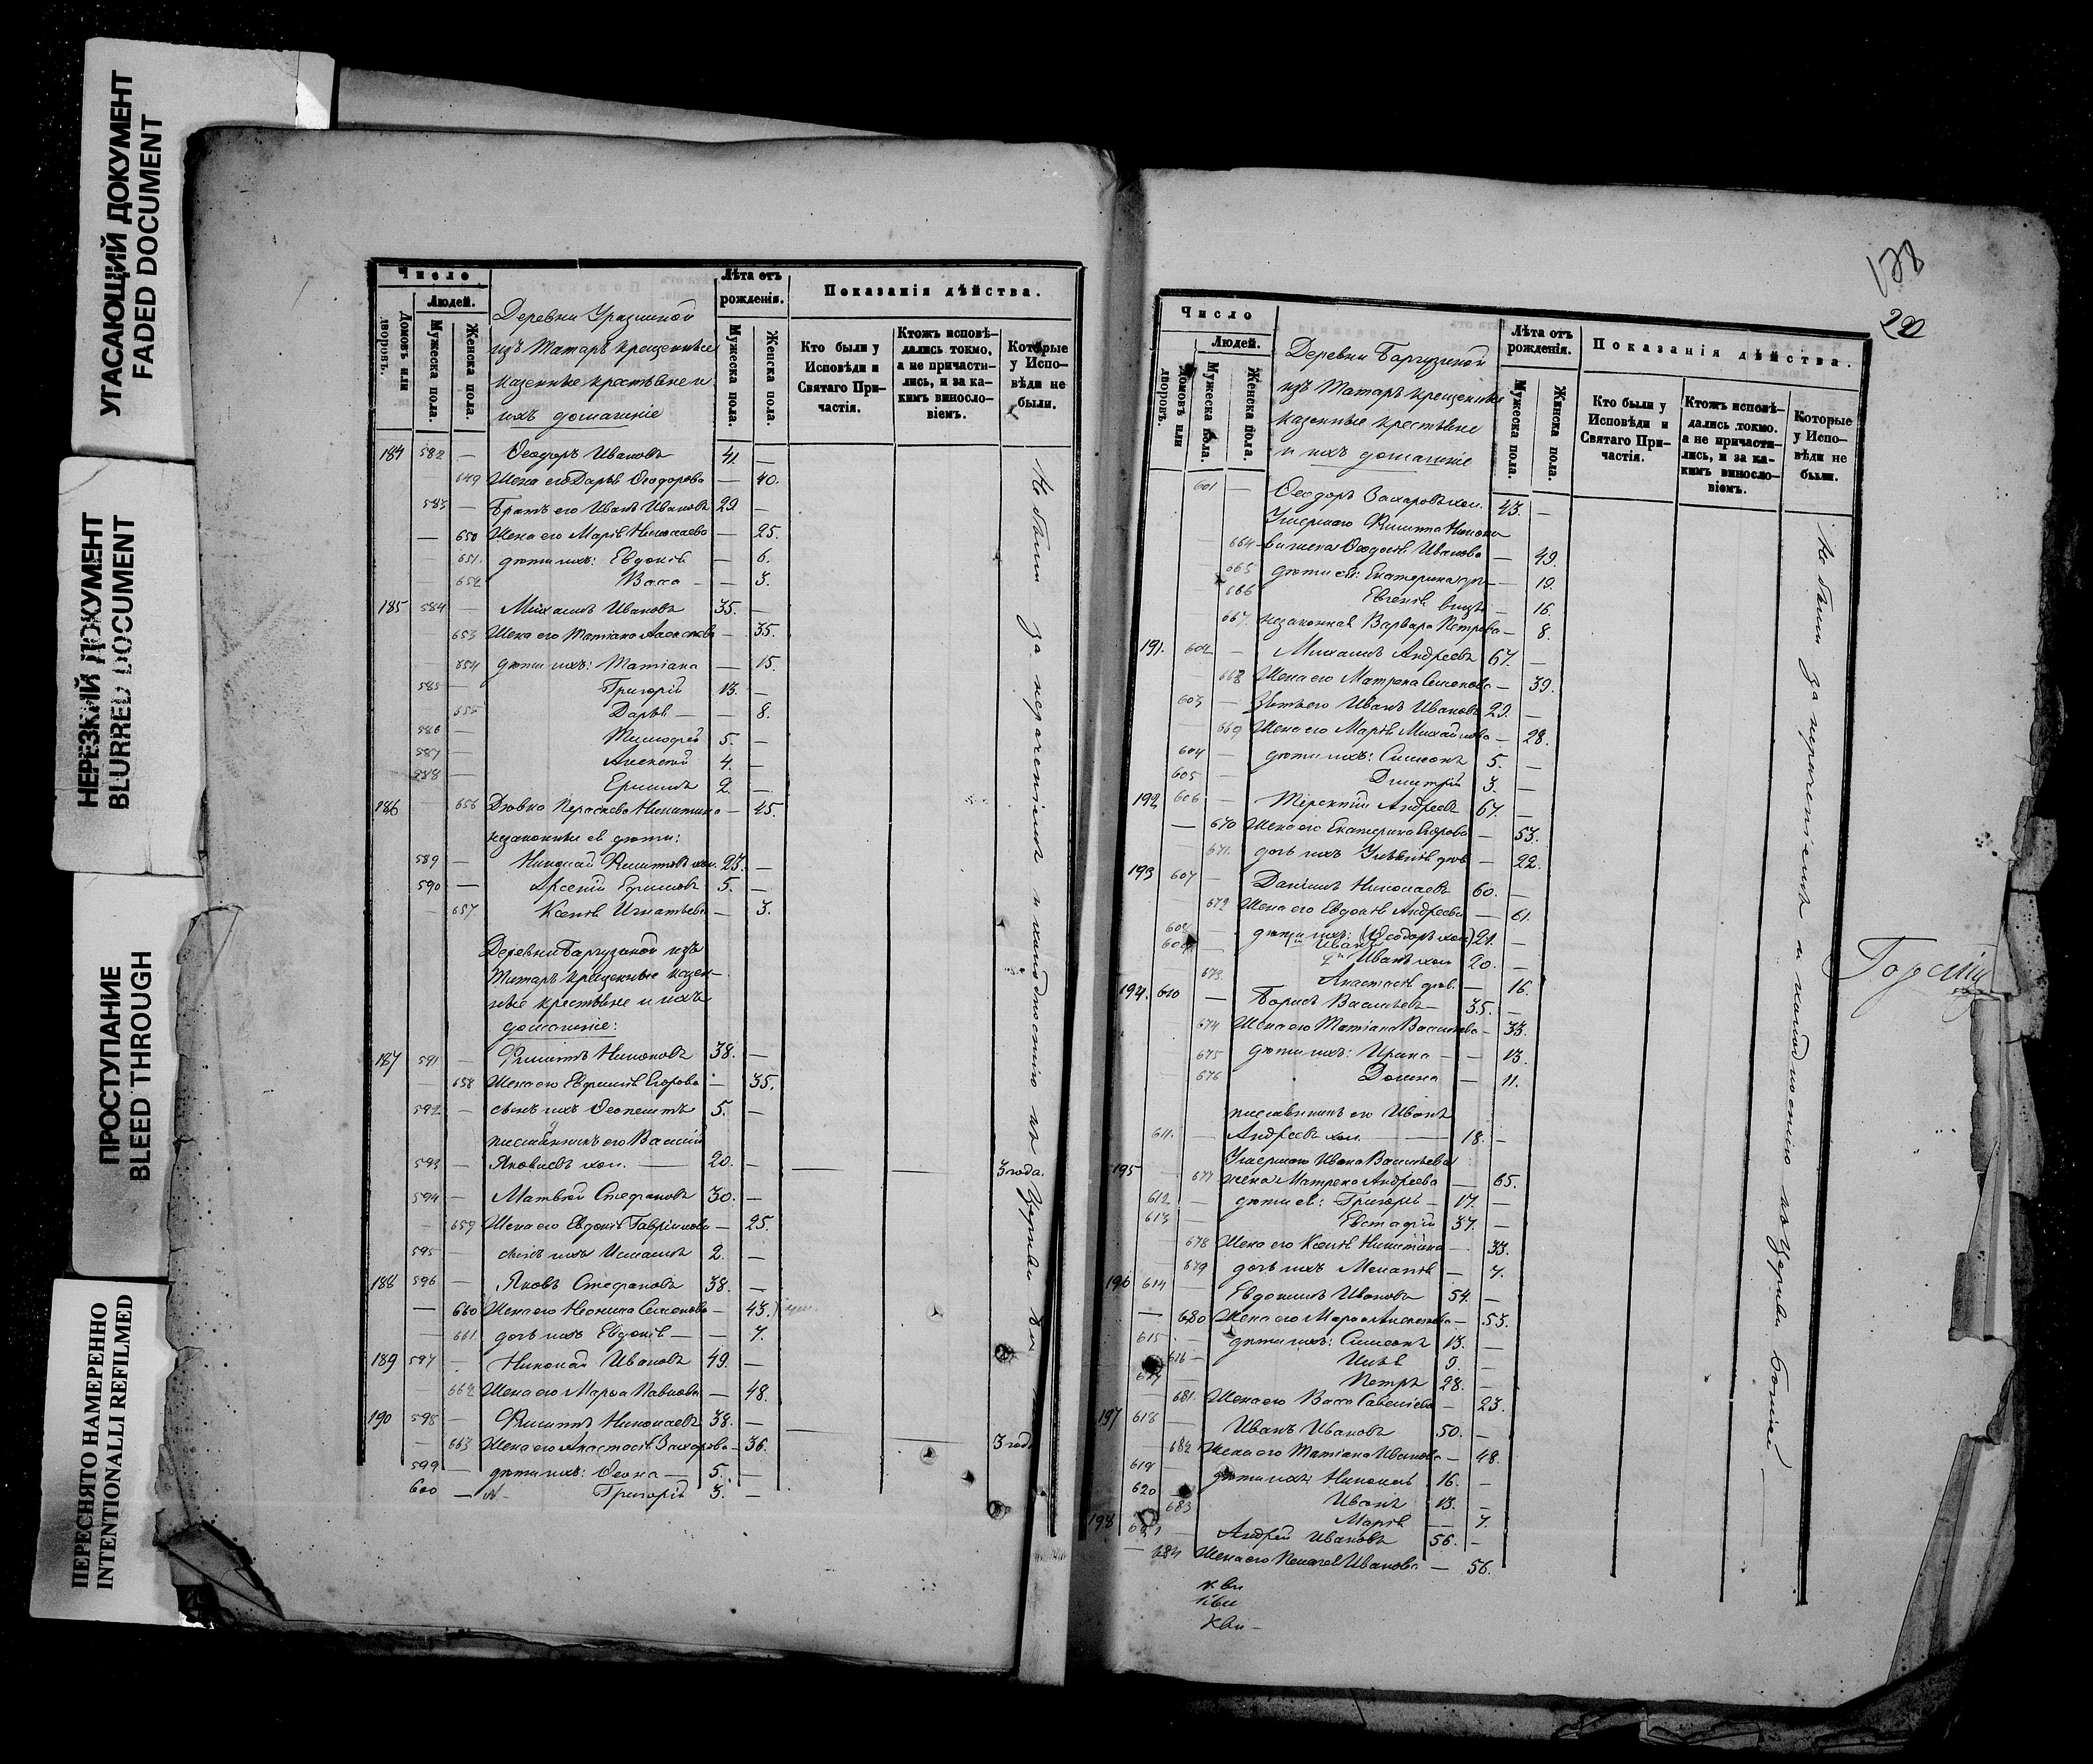 УГАСАЮЩИЙ ДОКУМЕНТ
FADED DOCUMENT
НЕРЕЗКИЙ ДОКУМЕНТ
BLURRED DOCUMENT
ПРОСТУПАНИЕ
BLEED THROUGH
ПЕРЕСНЯТО НАМЕРЕННО
INTENTIONALLI REFILMED
Число
Домовъ или дворовъ.
Людей.
Мужеска пола.
Женска пола.
Деревни
изъ Татаръ крещенные
казенные крестьяне и
ихъ домашніе
Лѣта отъ рожденія.
Мужеска пола.
Женска пола.
Показанія дѣйства.
Кто были у Исповѣди и Святаго Причастія.
Ктожъ исповѣдались токмо, а не причастились, и за какимъ винословіемъ.
Которые у Исповѣди не были.
184 582 — Ѳеодоръ Ивановъ 41. —
649 Жена его Дарья Ѳеодорова — 40.
583 — Братъ его Иванъ Ивановъ 29 —
— 650 Жена его Марія Николаева — 25.
651. дѣти ихъ: Евдокія — 6.
652 Васса — 3.
185 584 — Михаилъ Ивановъ 35. —
653 Жена его Татіана — 35.
654 дѣти ихъ: Татіана — 15.
585 — Григорій 13. —
655 Дарья — 8.
586 — Тимофей 5. —
587 — Алексей 4. —
588 — Ермилъ 2. —
186 — 656 Параскева Никитина — 45.
незаконные ея дѣти:
589 — Николай Филиповъ хол. 23. —
590 — Арсеній Ефимовъ 5. —
— 657 Ксенія Игнатьева — 3.
Деревни изъ
Татаръ крещенные казен-
ные крестьяне и ихъ
домашніе:
187 591 — Филиппъ Никоновъ 38. —
— 658 Жена его Евфимія Егорова — 35.
592 — сынъ ихъ Ѳеопемптъ 5. —
пасынокъ его Василій
593 — Яковлевъ хол. — 20. — — — 3 года.
594 — Матвей Стефановъ 30. —
— 659 Жена его Евдокія Гавриилова — 25.
595 — сынъ ихъ 2. —
188 596 — Яковъ Стефановъ 38. —
— 660 Жена его Неонила Семенова — 43.
— 661 дочь ихъ Евдокія — — 7.
189 597 . Николай Ивановъ 49. —
— 662 Жена его Марѳа Павлова — 48.
190 598 — Филиппъ Николаевъ 38. —
— 663 Жена его Анастасія Захарова — 36. — 3 года
599 — дѣти ихъ: Ѳеона — 5. —
600 — Григорій 3. —
Не были за нераченіемъ и хладностію къ Церкви
138
290
Число
Домовъ или дворовъ.
Людей.
Мужеска пола.
Женска пола.
Деревни
изъ Татаръ крещенные
казенные крестьяне
и ихъ домашніе
Лѣта отъ рожденія.
Мужеска пола.
Женска пола.
Показанія дѣйства.
Кто были у Исповѣди и Святаго Причастія.
Ктожъ исповѣдались токмо. а не причастились, и за какимъ винословіемъ.
Которые у Исповѣди не были.
601 — Ѳеодоръ Захаровъ хол. 43. —
Умершаго Филиппа
664 жена Ѳеодосія Иванова — 49.
665 дѣти ея: Екатерина — 19.
666 Евгенія — 16.
667. незаконная Варвара Петрова — 8.
191. 602 — Михаилъ Андреевъ 67. —
668 Жена его Матрена Семенова — 39.
603 — Зять его Иванъ Ивановъ 29. —
669 Жена его Марія Михайлова — 28.
604 — дѣти ихъ: Симеонъ 5. —
605 — Димитрій 3. —
192 606 — Терентій Андреевъ 67. —
— 670 Жена его Екатерина Егорова — 53.
671. дочь ихъ — 22.
193 607 — Даніилъ Николаевъ 60. —
672 Жена его Евдокія Андреева — 61.
608 — дѣти ихъ: Ѳеодоръ хол 21. —
609 Иванъ хол 20. —
673. Анастасія — 16.
194. 610 — Борисъ Васильевъ — 35. —
674 Жена его Татіана Васильева — 33.
675 дѣти ихъ: Ирина — — 13.
676 Домна — 11.
пасынокъ его Иванъ
611. — Андреевъ хол. — 18. —
195 Умершаго Ивана Васильева
677 жена Матрена Андреева — 65.
612 — дѣти ея: Григорій — 17. —
613 — Евстафій 37. —
678 Жена его Ксенія Никитина — 33.
679 дочь ихъ Меланія — 7.
196 614 — Евдокимъ Ивановъ 54. —
— 680 Жена его Марѳа Алексеева — 53.
615 — дѣти ихъ: Симеонъ 13. —
616 — Илья 9. —
617 Петръ 28. —
681. Жена его Васса Савельева — 23.
197 618 — Иванъ Ивановъ 50. —
682 Жена его Татіана Иванова — 48.
619 — дѣти ихъ: Николай 16. —
620 Иванъ 13. —
683 Марія — 7.
198 621 — Андрей Ивановъ 56. —
— 684 Жена его Пелагея Иванова — 56.
Не были за нераченіемъ и хладностію къ Церкви Божіей —